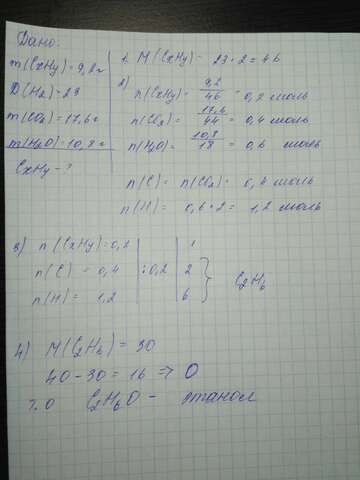 Дано:
m(CxHy) = 9,2 г
D(H₂) = 23
m(CO₂) = 17,6 г
m(H₂O) = 10,8 г
CxHy - ?
1. M(CxHy) = 23·2 = 46
2)
n(CxHy) = 9,2/46 = 0,2 моль
n(CO₂) = 17,6/44 = 0,4 моль
n(H₂O) = 10,8/18 = 0,6 моль
n(C) = n(CO₂) = 0,4 моль
n(H) = 0,6·2 = 1,2 моль
3) n(CxHy) = 0,2 | | 1
n(C) = 0,4 | :0,2 | 2 } C₂H₆
n(H) = 1,2 | | 6
4) M(C₂H₆) = 30
40 - 30 = 16 => O
т.о C₂H₆O - этанол